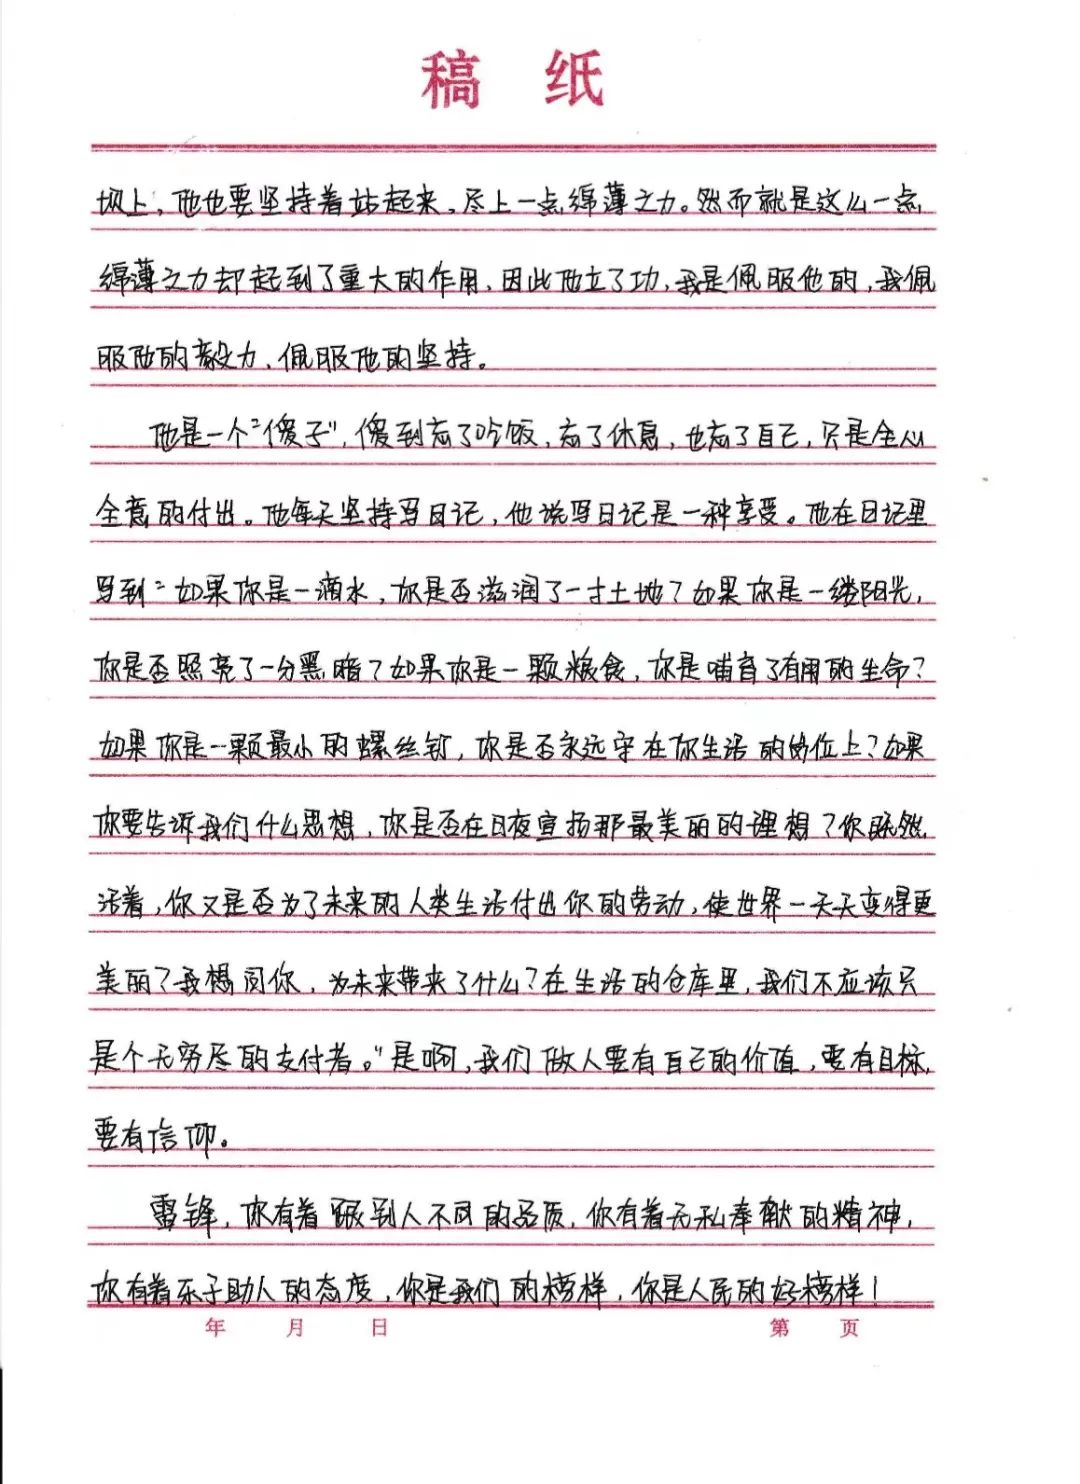 稿 纸
坝上,他也要坚持着站起来,尽上一点绵薄之力。然而就是这么一点
绵薄之力却起到了重大的作用,因此他立了功,我是佩服他的,我佩
服他的毅力、佩服他的坚持。
他是一个“傻子”,傻到忘了吃饭,忘了休息,也忘了自己,只是全心
全意的付出。他每天坚持写日记,他说写日记是一种享受。他在日记里
写到“如果你是一滴水,你是否滋润了一寸土地?如果你是一缕阳光,
你是否照亮了一分黑暗?如果你是一颗粮食,你是哺育了有用的生命?
如果你是一颗最小的螺丝钉,你是否永远守在你生活的岗位上?如果
你要告诉我们什么思想,你是否在日夜宣扬那最美丽的理想?你既然
活着,你又是否为了未来的人类生活付出你的劳动,使世界一天天变得更
美丽?我想问你,为未来带来了什么?在生活的仓库里,我们不应该只
是个无穷尽的支付者。”是啊,我们做人要有自己的价值,要有目标,
要有信仰。
雷锋,你有着跟别人不同的品质,你有着无私奉献的精神,
你有着乐于助人的态度,你是我们的榜样,你是人民的好榜样!
年 月 日 第 页